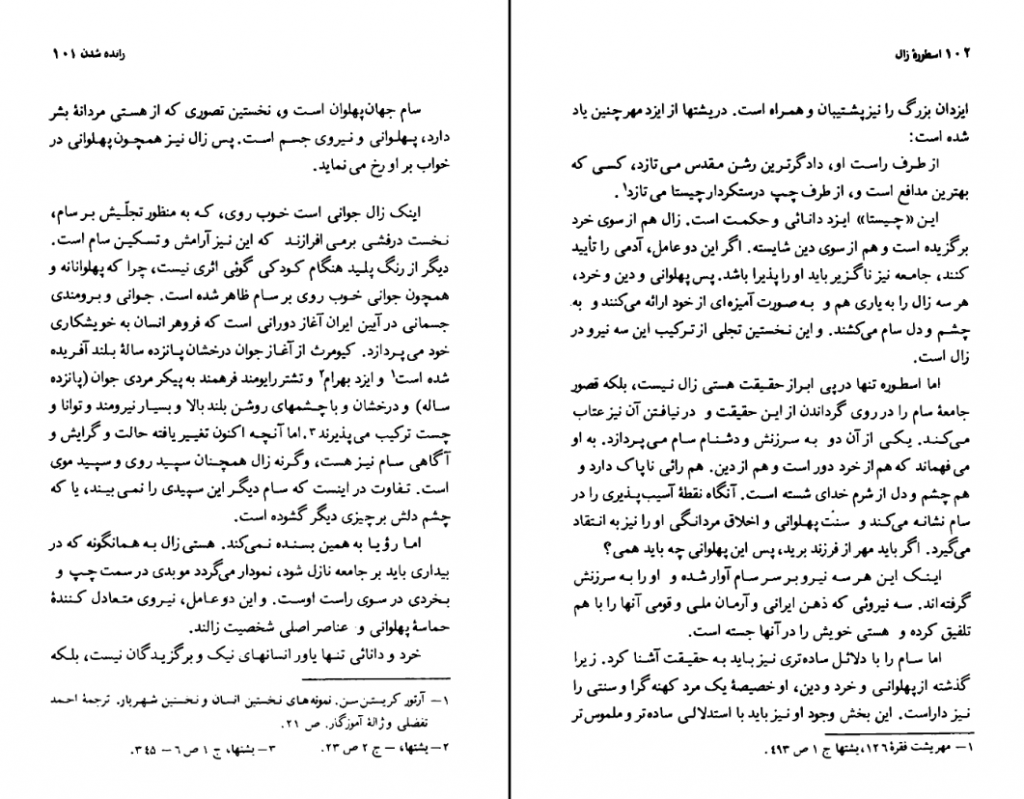 رانده شدن ۱۰۱
سام جهان‌پهلوان است و، نخستین تصوری که از هستی مردانهٔ بشر
دارد، پهلوانی و نیروی جسم است. پس زال نیز همچون پهلوانی در
خواب بر او رخ می‌نماید.
اینک زال جوانی است خوب روی، که به منظور تجلّیش بر سام،
نخست درفشی برمی‌افرازند که این نیز آرامش و تسکین سام است.
دیگر از رنگ پلید هنگام کودکی گوئی اثری نیست، چرا که پهلوانانه و
همچون جوانی خوب روی بر سام ظاهر شده است. جوانی و برومندی
جسمانی در آیین ایران آغاز دورانی است که فروهر انسان به خویشکاری
خود می‌پردازد. کیومرث از آغاز جوان درخشان پانزده سالهٔ بلند آفریده
شده است۱ و ایزد بهرام۲ و تشتر رایومند فرهمند به پیکر مردی جوان (پانزده
ساله) و درخشان و با چشمهای روشن بلند بالا و بسیار نیرومند و توانا و
چست ترکیب می‌پذیرند۳. اما آنچه اکنون تغییر یافته حالت و گرایش و
آگاهی سام نیز هست، وگرنه زال همچنان سپید روی و سپید موی
است. تفاوت در اینست که سام دیگر این سپیدی را نمی‌بیند، یا که
چشم دلش بر چیزی دیگر گشوده است.
اما رؤیا به همین بسنده نمی‌کند. هستی زال به همانگونه که در
بیداری باید بر جامعه نازل شود، نمودار می‌گردد موبدی در سمت چپ و
بخردی در سوی راست اوست. و این دو عامل، نیروی متعادل کنندهٔ
حماسهٔ پهلوانی و عناصر اصلی شخصیت زالند.
خرد و دانائی تنها یاور انسانهای نیک و برگزیدگان نیست، بلکه
۱— آرتور کریستن سن. نمونه‌های نخستین انسان و نخستین شهریار. ترجمهٔ احمد
تفضلی و ژالهٔ آموزگار. ص ۲۱.
۲— یشتها، — ج ۲ ص ۲۳. ۳— یشتها، ج ۱ ص ۶ — ۳۴۵.
۱۰۲ اسطورهٔ زال
ایزدان بزرگ را نیز پشتیبان و همراه است. در یشتها از ایزد مهر چنین یاد
شده است:
از طرف راست او، دادگرترین رشن مقدس می‌تازد، کسی که
بهترین مدافع است و، از طرف چپ درستکردار چیستا می‌تازد۱.
این «چیستا» ایزد دانائی و حکمت است. زال هم از سوی خرد
برگزیده است و هم از سوی دین شایسته. اگر این دو عامل، آدمی را تأیید
کنند، جامعه نیز ناگزیر باید او را پذیرا باشد. پس پهلوانی و دین و خرد،
هر سه زال را به یاری هم و به صورت آمیزه‌ای از خود ارائه می‌کنند و به
چشم و دل سام می‌کشند. و این نخستین تجلی از ترکیب این سه نیرو در
زال است.
اما اسطوره تنها در پی ابراز حقیقت هستی زال نیست، بلکه قصور
جامعهٔ سام را در روی گرداندن از این حقیقت و در نیافتن آن نیز عتاب
می‌کند. یکی از آن دو به سرزنش و دشنام سام می‌پردازد. به او
می‌فهماند که هم از خرد دور است و هم از دین. هم رائی ناپاک دارد و
هم چشم و دل از شرم خدای شسته است. آنگاه نقطهٔ آسیب‌پذیری را در
سام نشانه می‌کند و سنّت پهلوانی و اخلاق مردانگی او را نیز به انتقاد
می‌گیرد. اگر باید مهر از فرزند برید، پس این پهلوانی چه باید همی؟
اینک این هر سه نیرو بر سر سام آوار شده و او را به سرزنش
گرفته‌اند. سه نیروئی که ذهن ایرانی و آرمان ملی و قومی آنها را با هم
تلفیق کرده و هستی خویش را در آنها جسته است.
اما سام را با دلائل ساده‌تری نیز باید به حقیقت آشنا کرد. زیرا
گذشته از پهلوانی و خرد و دین، او خصیصهٔ یک مرد کهنه گرا و سنتی را
نیز داراست. این بخش وجود او نیز باید با استدلالی ساده‌تر و ملموس‌تر
۱— مهریشت فقرهٔ ۱۲۶، یشتها ج ۱ ص ۴۹۳.